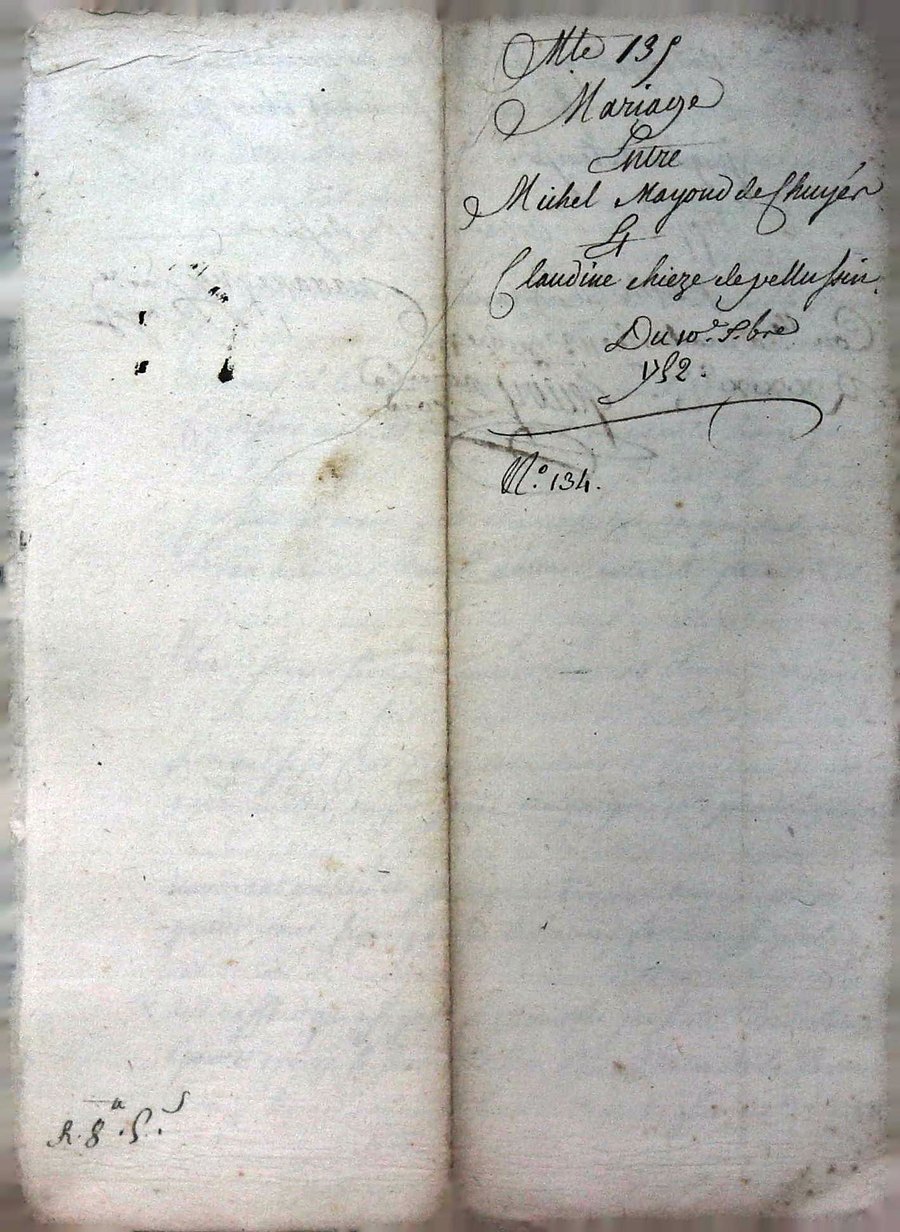 Mte 135
Mariage
Entre
Michel Mayoud de Chuyer
Et
Claudine chieze de pellussin.
Du 10e. 8.bre
1752.
N.o 134.
R. 8.